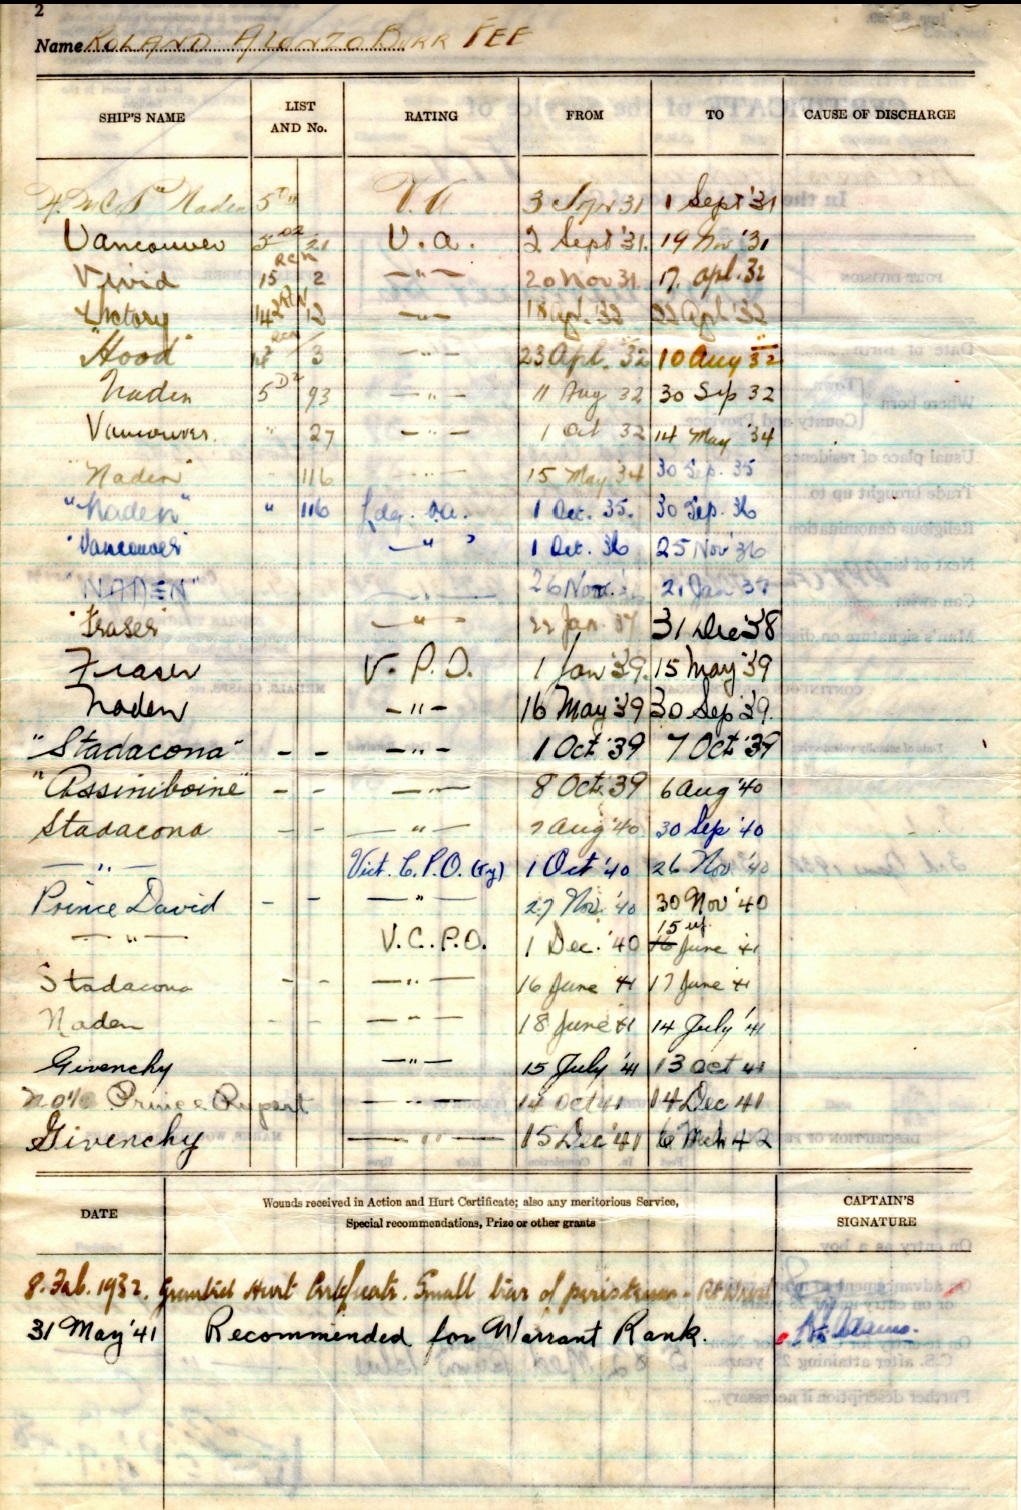 2
Name ROLAND ALONZO BURR FEE
SHIP'S NAME LIST AND No. RATING FROM TO CAUSE OF DISCHARGE
"Naden 5 V.A. 3 31 1 Sept '31
Vancouver 21 V.a. 2 Sept '31. 19 Nov '31
Vivid 15 2 —"— 20 Nov 31. 17. Apl. 32
Victory 14 12 —"— 18 Apl. 32 22 Apl '32
"Hood" 3 —"— 23 Apl. '32 10 Aug 32
Naden 5 D2 93 —"— 11 Aug 32 30 Sep 32
Vancouver. " 27 —"— 1 Oct 32 14 May '34
"Naden" " 116 —"— 15 May '34 30 Sep. 35
"Naden" " 116 Ldg. V.a. 1 Oct. 35. 30 Sep. 36
"Vancouver" —"— 1 Oct. 36 25 Nov '36
"NADEN" —"— 26 Nov. 21 Jan 37
"Fraser" —"— 22 Jan. 37 31 Dec '38
Fraser V. P.O. 1 Jan '39. 15 May '39
Naden —"— 16 May '39 30 Sep '39.
"Stadacona" – – —"— 1 Oct '39 7 Oct '39
"Assiniboine" – – —"— 8 Oct '39 6 Aug '40
Stadacona – – —"— 7 Aug '40 30 Sep '40
—"— Vict. C.P.O. (Ty) 1 Oct '40 26 Nov '40
Prince David – – —"— 27 Nov. '40 30 Nov '40
—"— V.C.P.O. 1 Dec. '40 15 16 June '41
Stadacona – – —"— 16 June '41 17 June '41
Naden – – —"— 18 June '41 14 July '41
Givenchy —"— 15 July '41 13 Oct 41
Prince Rupert —"— 14 Oct 41 14 Dec 41
Givenchy —"— 15 Dec '41 6 Mch 42
DATE Wounds received in Action and Hurt Certificate; also any meritorious Service, CAPTAIN'S
Special recommendations, Prize or other grants SIGNATURE
8. Feb. 1932. Granted Hurt Certificate. Small tear of Rt
31 May '41 Recommended for Warrant Rank. Adams.